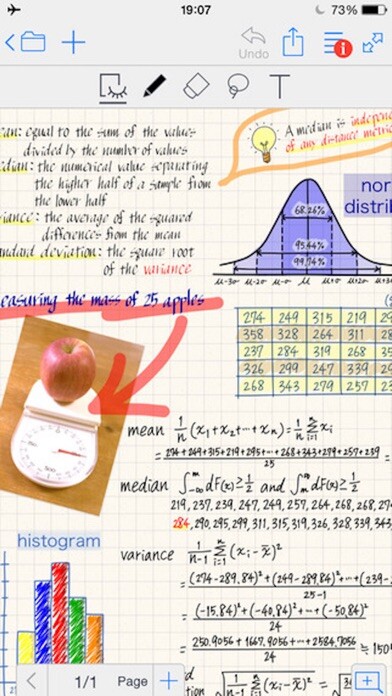 19:07
73%
Undo
T
ean: equal to the sum of the values
divided by the number of values
dian: the numerical value separating
the higher half of a sample from
the lower half
iance: the average of the squared
differences from the mean
andard deviation: the square root
of the variance
A median is indepen
of any distance metri
nor
distrib
68.26%
95.44%
99.74%
μ-3σ μ-2σ μ-σ μ μ+σ μ+2σ μ+3
easuring the mass of 25 apples
274 249 315 219 29
358 328 264 311 28
237 284 319 268 35
326 299 247 339 29
268 343 279 257 23
mean 1/n (x₁+x₂+…+xₙ)=1/n Σᵢ₌₁ⁿ xᵢ
=274+249+315+219+295+…+268+343+299+257+239/25 =
median ∫₋∞ᵐ dF(x)≥1/2 and ∫ₘ^∞ dF(x)≥1/2
219, 237, 239, 247, 249, 257, 264, 268, 268, 274
284, 290, 295, 299, 311, 315, 319, 326, 328, 339, 343
histogram
variance 1/n-1 Σᵢ₌₁ⁿ (xᵢ-x̄)²
=(274-289.84)²+(249-289.84)²+…+(239-/25-1
=(-15.84)²+(-40.84)²+…+(-50.84)²/24
=250.9056+1667.9056+…+2584.7056/24 ≒150
d
tion √1/n-1 Σᵢ₌₁ⁿ (xᵢ-x̄)² =√36
1/1 Page